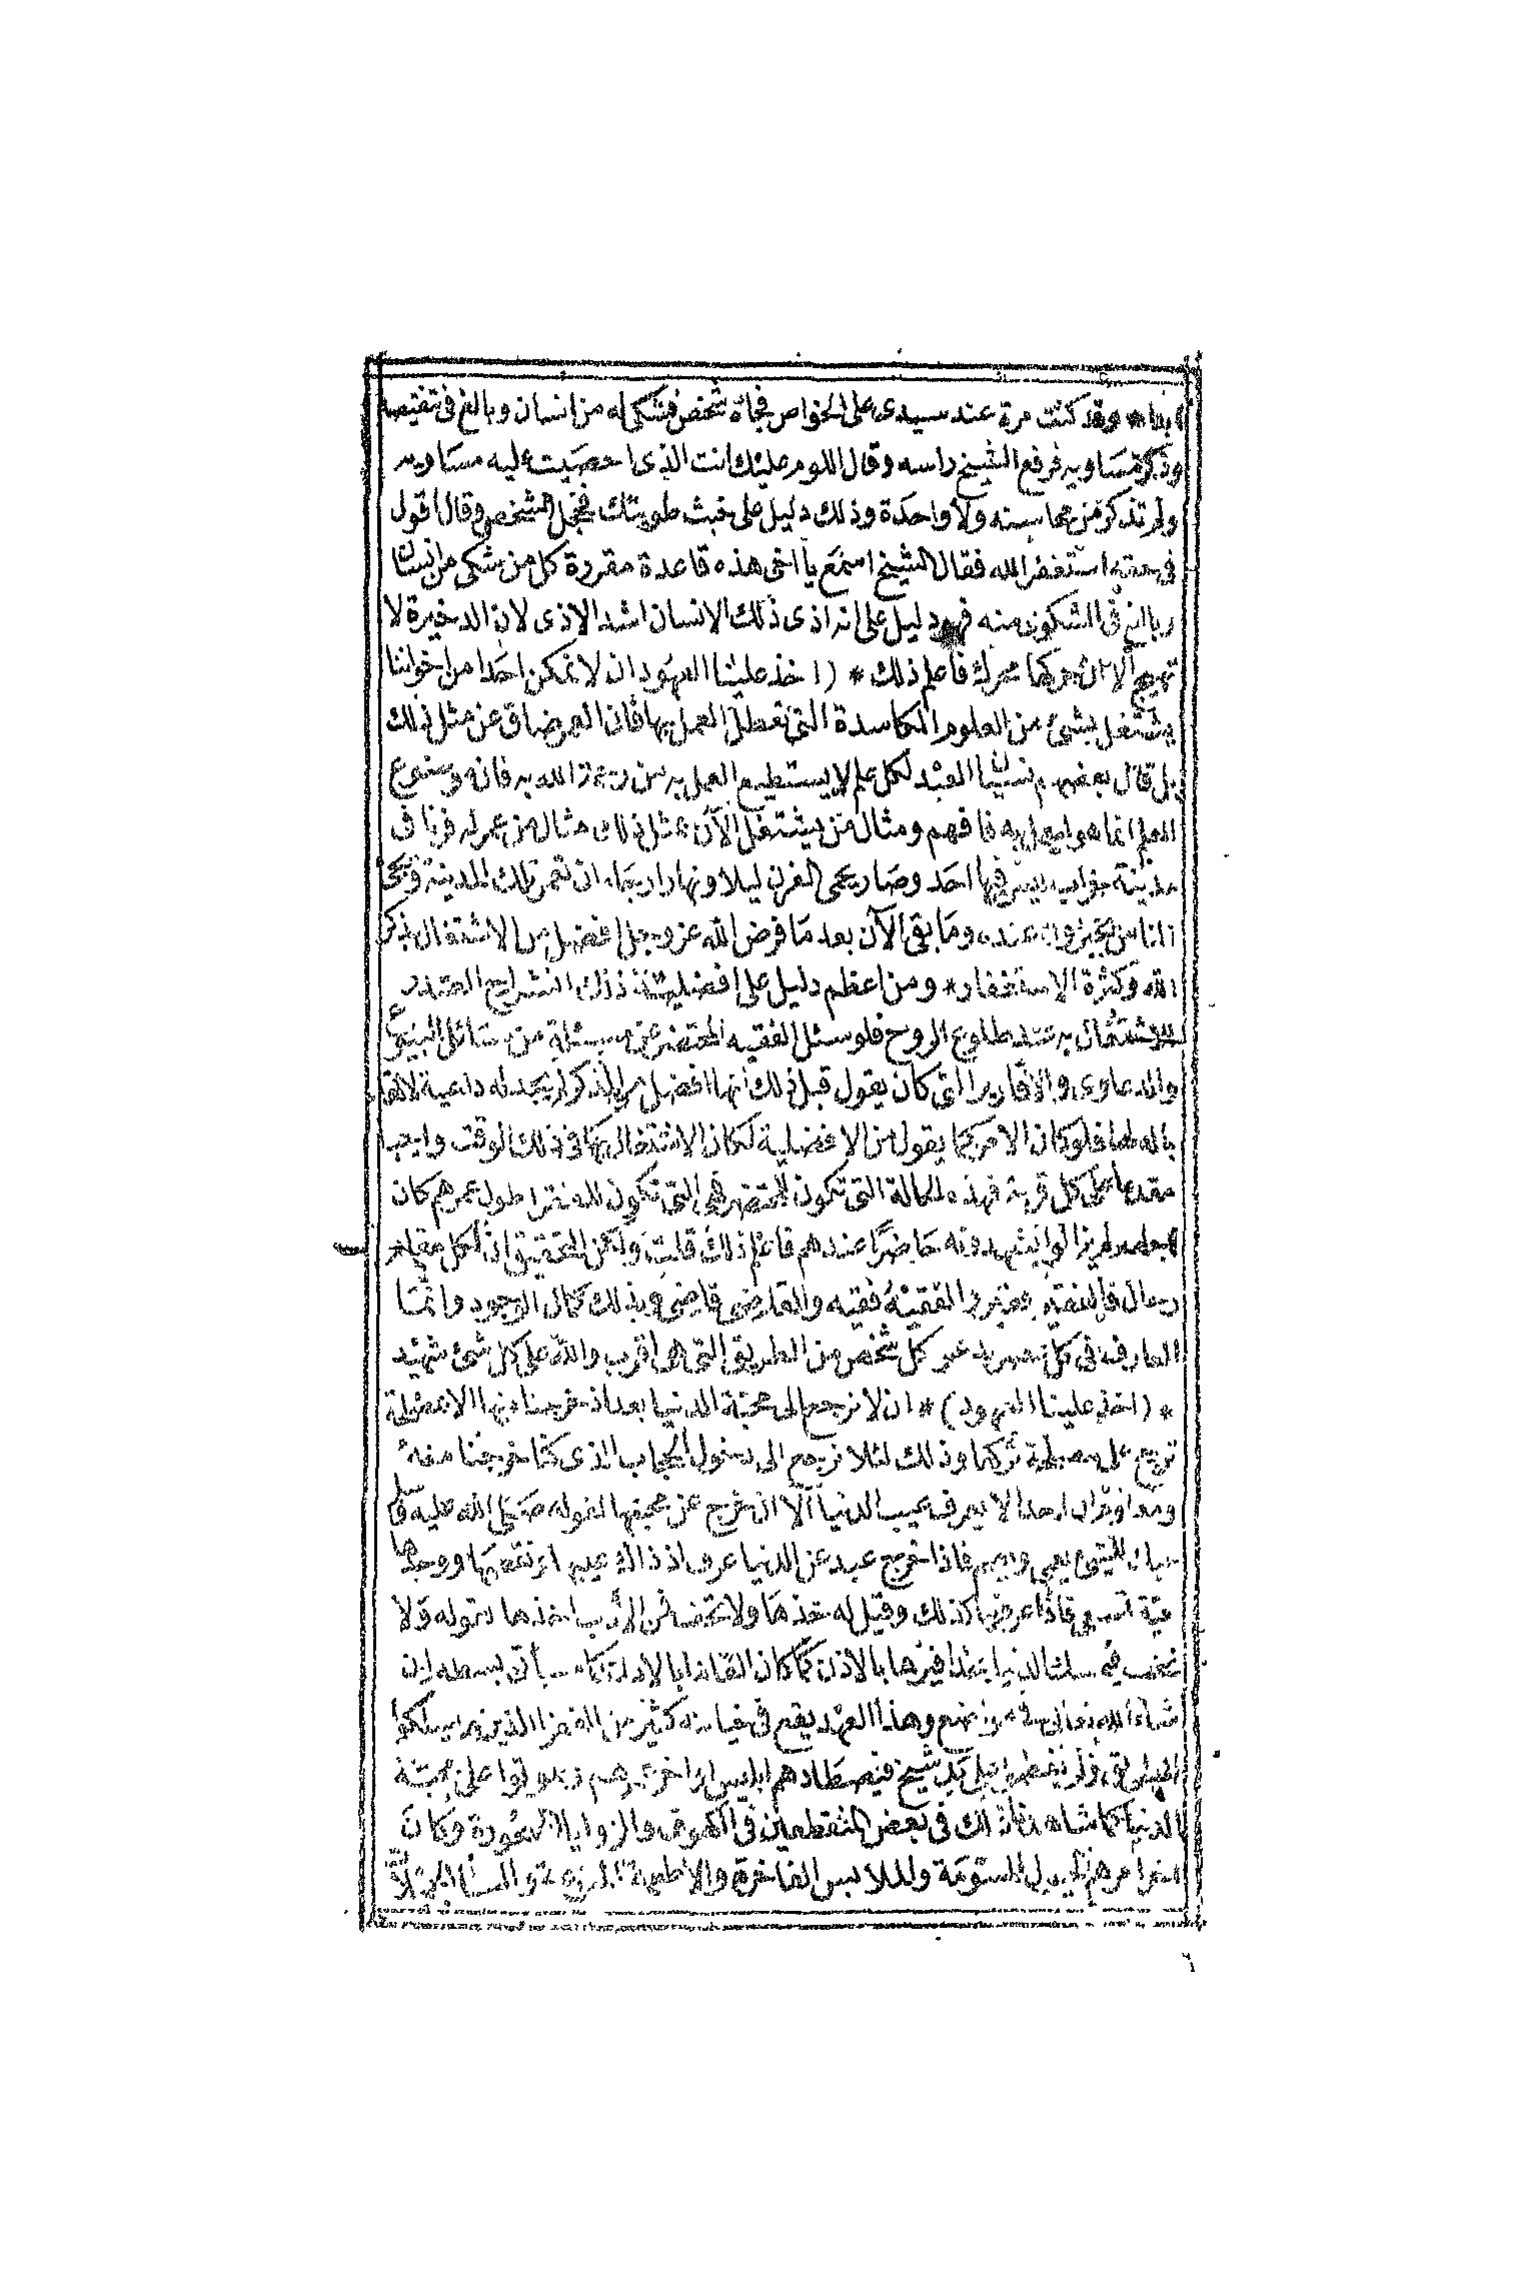 وقد كنت مرة عند سيدى على الخواص فجاءه شخص فشكى له من انسان وبالغ فى تنقيصه
وذكر مساويه فرفع الشيخ راسه وقال اللوم عليك انت الذى احصيت عليه مساويه
ولم تذكر من محاسنه ولا واحدة وذلك دليل على خبث طويتك فخجل الشخص وقال اقول
فى حقه استغفر الله فقال الشيخ اسمع يا اخى هذه قاعدة مقررة كل من شكى من انسان
وبالغ فى الشكوى منه فهو دليل على انه اذى ذلك الانسان اشد الاذى لان الذخيرة لا
تهيج الا ان حركها محرك فاعلم ذلك * (اخذ علينا العهود ان لا نمكن احدا من اخواننا
يشتغل بشئ من العلوم الكاسدة التى تعطل العمل بها فان العمر ضاق عن مثل ذلك
بل قال بعضهم نسيان العبد لكل علم لا يستطيع العمل به من رحمة الله به فانه
العلم انما هو ليعمل به فافهم ومثال من يشتغل الآن بمثل ذلك مثال من عمر له فرنا فى
مدينة خراب ليس فيها احد وصار يحمى الفرن ليلا ونهارا رجاء ان تعمر تلك المدينة ويجئ
الناس يخبزون عنده وما بقى الآن بعد ما فرض الله عز وجل افضل من الاشتغال بذكر
الله وكثرة الاستغفار * ومن اعظم دليل على افضلية ذلك انشراح الصدر
للاشتغال به عند طلوع الروح فلو سئل الفقيه المحتضر عن مسئلة من مسائل البيوع
والدعاوى والاقارير التى كان يقول قبل ذلك انها افضل من الذكر لم يجد له داعية
باله لها فلو كان الامر كما يقول من الافضلية لكان الاشتغال بها فى ذلك الوقت واجب
مقدما على كل قربة فهذه الحالة التى تكون للمحتضر هى التى تكون للفقرا طول عمرهم كان
لم يزالوا يشهدونه حاضرا عندهم فاعلم ذلك قلت ولكن التحقيق ان لكل مقام
رجال فالفقير فقير والفقيه فقيه والقاضى قاضى وبذلك كمال الوجود وانما
العارف فى كل عصر يدعو كل شخص من الطريق التى هو اقرب والله على كل شئ شهيد
* (اخذ علينا العهود) * ان لا نرجع الى محبة الدنيا بعد اذ خرجنا عنها الا لمصلحة
ترجح على مصلحة تركها وذلك لئلا نرجع الى دخول الحجاب الذى كنا خرجنا منه
احدا لا يعرف عيب الدنيا الا ان خرج عن محبتها لقوله صلى الله عليه
حبك للشئ يعمى ويصم فاذا خرج عبد عن الدنيا عرف اذ ذاك عيبها ونقصها ووجدها
حية تسعى فاذا عرفها كذلك وقيل له خذها ولا تخف فمن الادب اخذها لقوله ولا
تخف فيمسك الدنيا بحذافيرها بالاذن كما كان القاها بالاذن كما سيأتى بسطه ان
شاء الله تعالى فى مواضع وهذا العهد يقع فى خيانته كثير من الفقرا الذين لم يسلكوا
الطريق ولم يفطموا على يد شيخ فيصطادهم ابليس اواخر عمرهم ويموتوا على محبة
الدنيا كما شاهدنا ذلك فى بعض المنقطعين فى الكهوف والزوايا المهجورة وكان
الخيل المسومة والملابس الفاخرة والاطعمة
٦